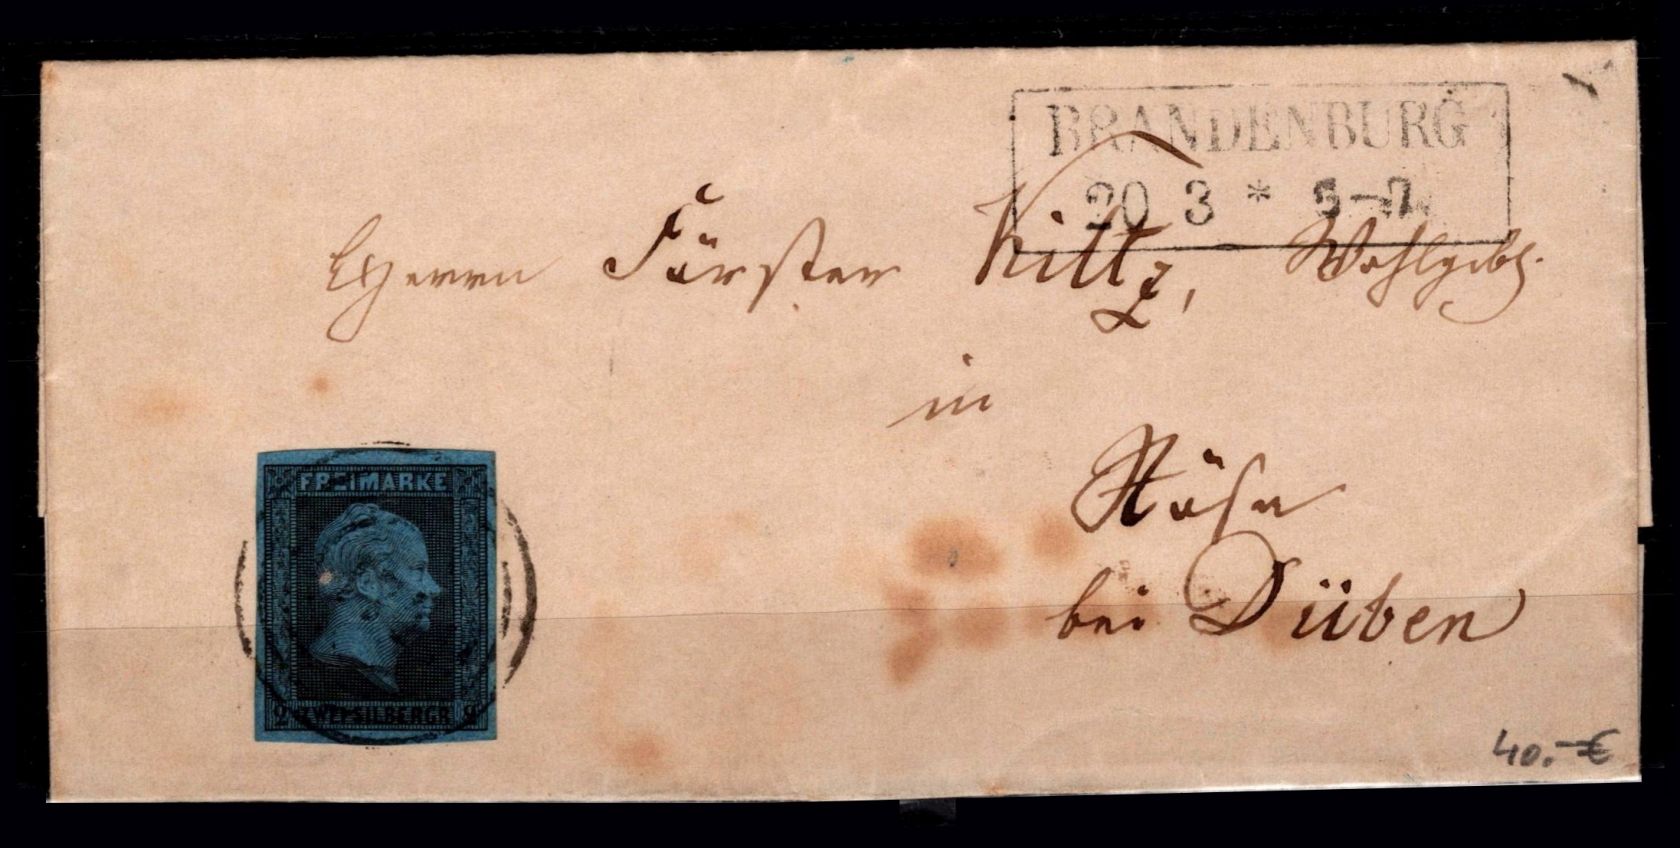 BRANDENBURG
20 3 * 5-7
Herrn Förster Kiltz, Wohlgeb.
in
bei Düben
FREIMARKE
2 ZWEI SILBERGR. 2
40.-€